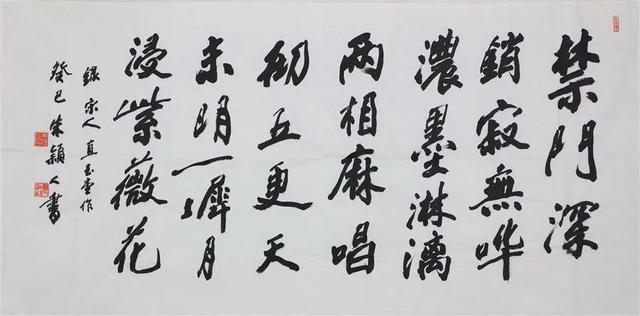 禁門深
鎖寂無哗
濃墨淋漓
两相麻唱
彻五更天
未明一墀月
浸紫薇花
錄宋人直玉堂作
癸巳朱穎人書